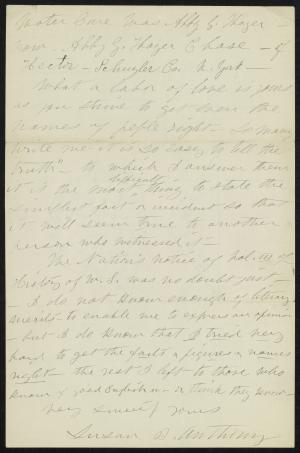 Water Cure was Abby G. Thayer
now - Abby G. Thayer Chase - of
Hector - Schuyler Co. N. York -
What a labor of love is yours
as you strive to get even the
names of people right - So many
write me it is so easy to tell the
truth" - to which I answer them
it is the most difficult thing, to state the
simplest fact or incident so that
it will seem true to another
person who witnessed it -
The Nation's notice of vol. III of
History of W. S. was no doubt just -
I do not know enough of literary
merits to enable me to express an opinion
- but I do know that I tried very
hard to get the facts & figures & names
right - the rest I left to those who
know of good English - or think they know -
Very sincerely yours
Susan B. Anthony